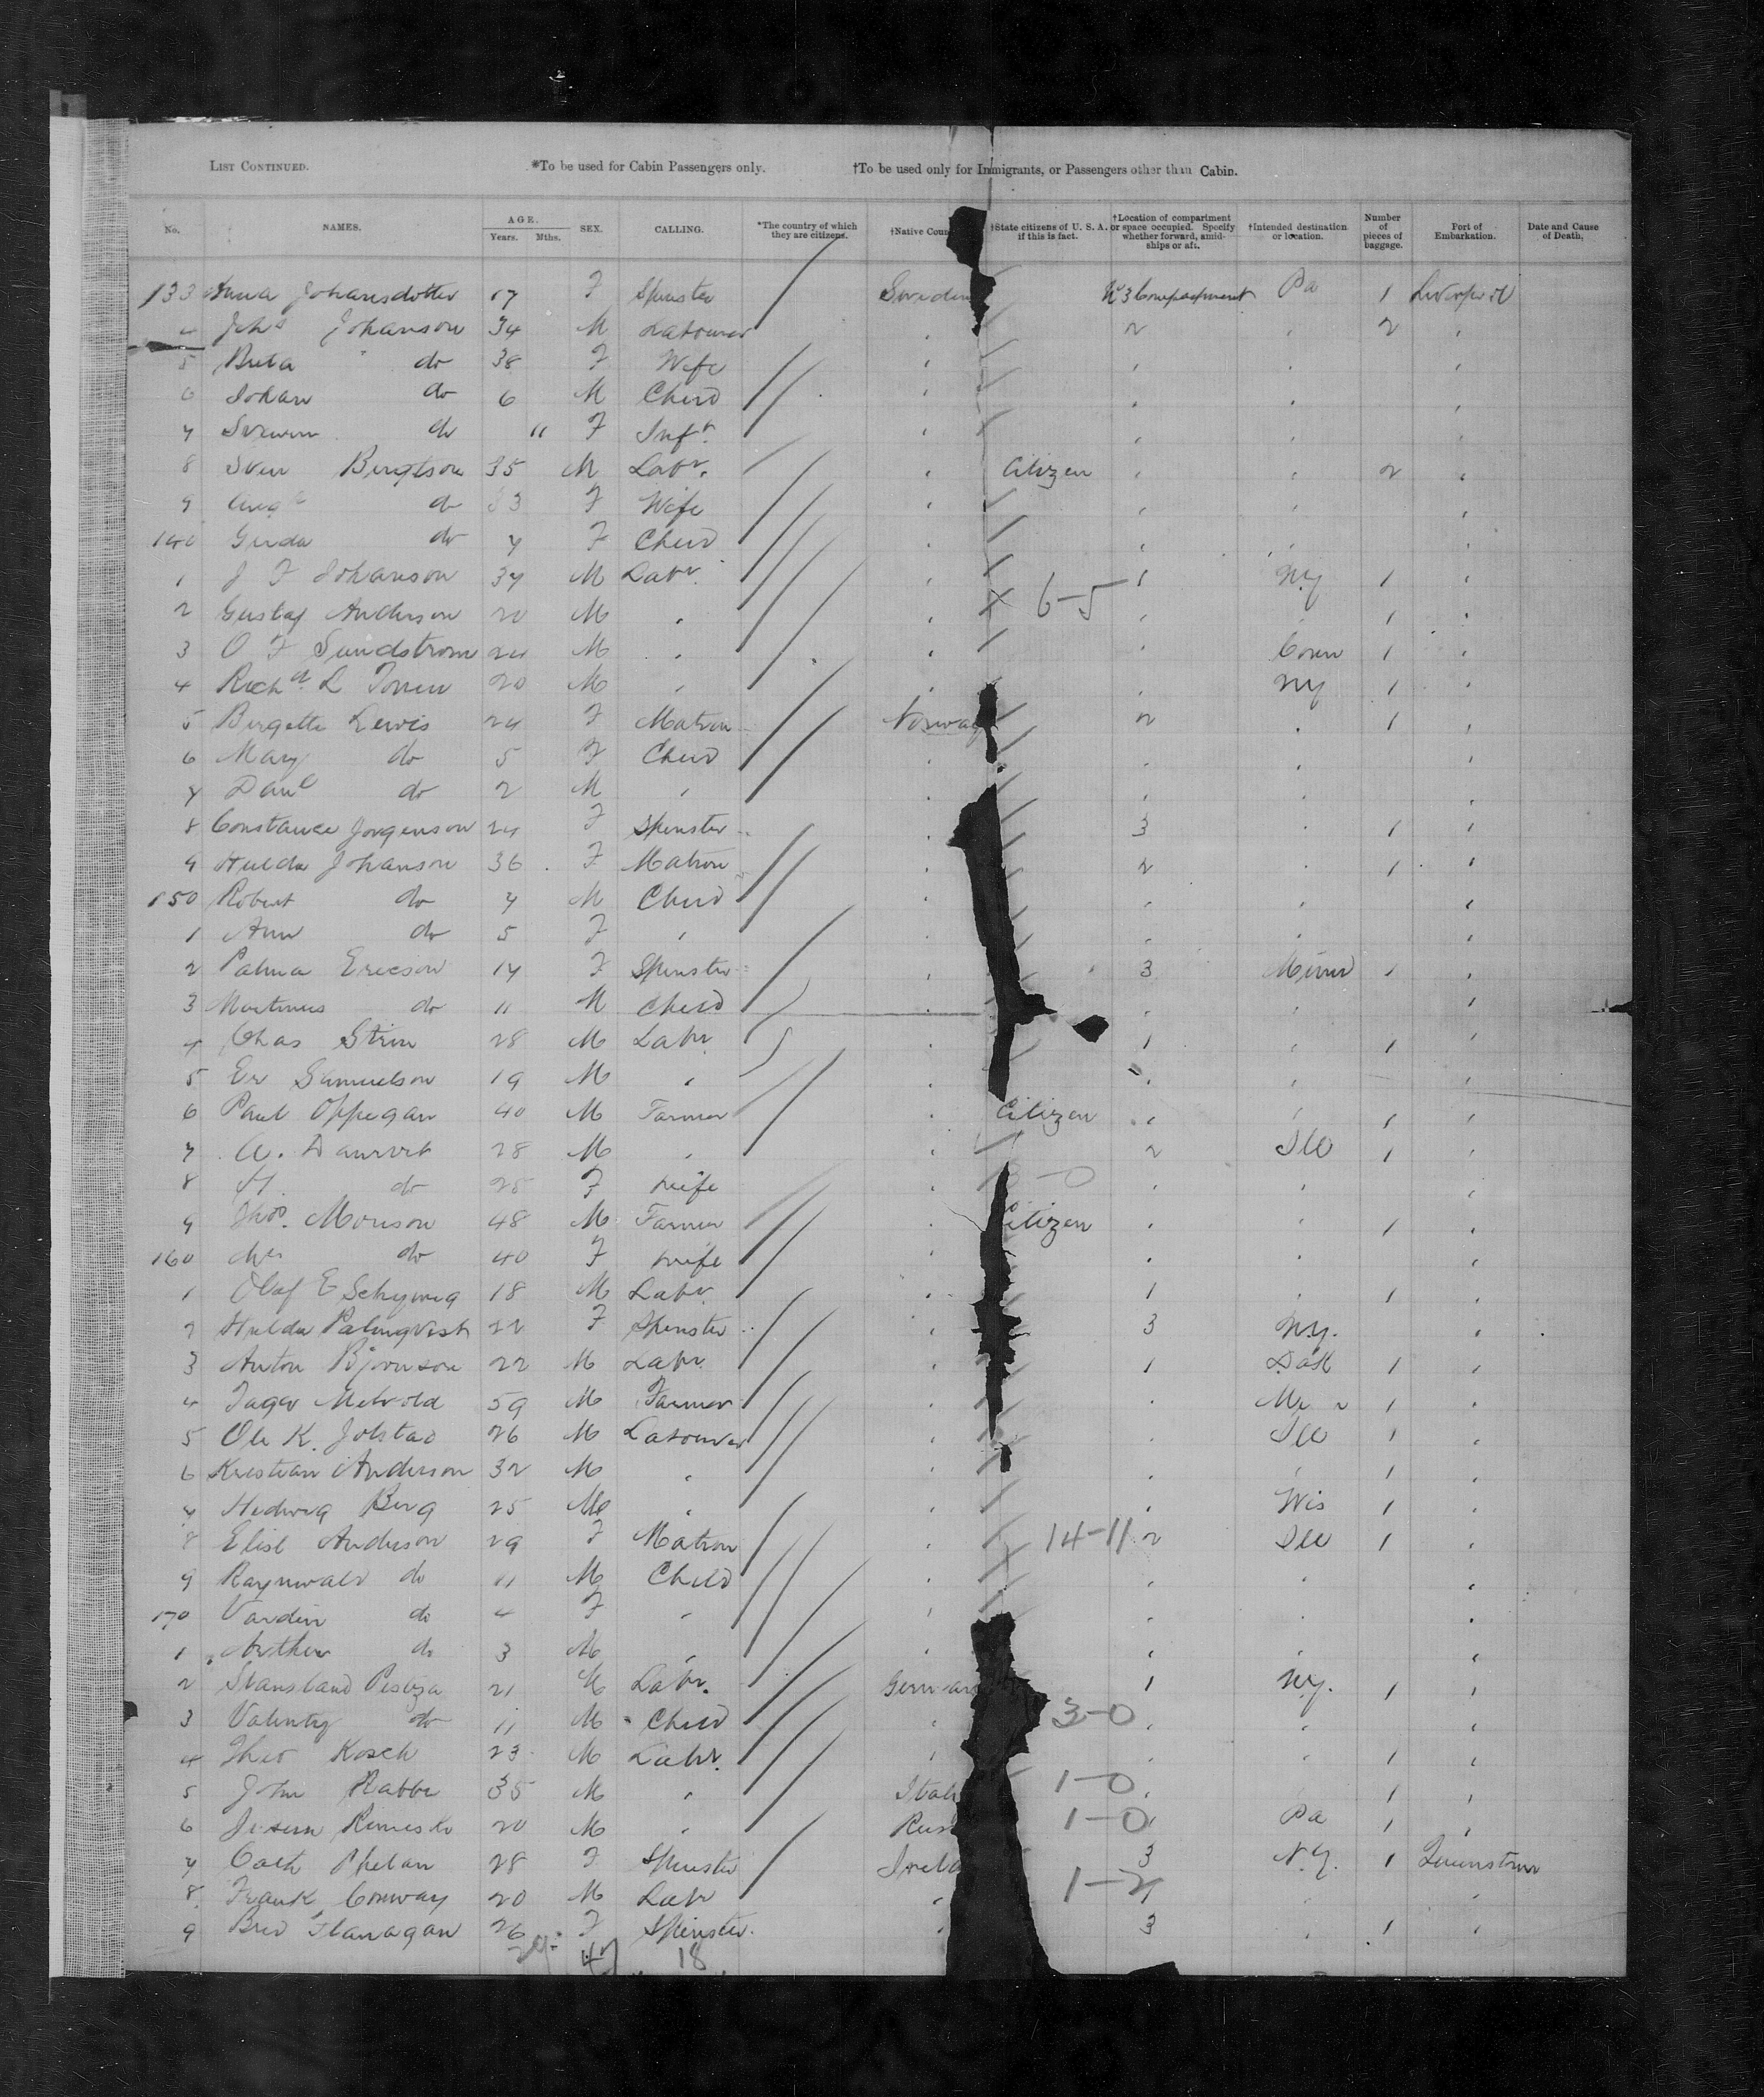 LIST CONTINUED. *To be used for Cabin Passengers only. †To be used only for Immigrants, or Passengers other than Cabin.
No. NAMES. AGE. Years. Mths. SEX. CALLING. *The country of which they are citizens. †Native Coun †State citizens of U. S. A. if this is fact. †Location of compartment or space occupied. Specify whether forward, amidships or aft. †Intended destination or location. Number of pieces of baggage. Port of Embarkation. Date and Cause of Death.
133 Anna Johansdotter 17 F Spinster Sweden No 3 Compartment Pa 1 Liverpool
4 Johs Johanson 34 M Labourer " 2 " 2 "
5 Brita do 38 F Wife " " " "
6 Johan do 6 M Child " " " "
7 do 11 F Inft " " " "
8 Sven Bengtson 35 M Labr. " Citizen " " 2 "
9 do 33 F Wife " " " "
140 Gerda do 7 F Child " " " "
1 J F Johanson 37 M Labr. " 1 NY 1 "
2 Gustaf Anderson 20 M " " 6-5 " " 1 "
3 O F Sundstrom 24 M " " " Conn 1 "
4 Richd L 20 M " " " NY 1 "
5 Bergetta Lewis 24 F Matron Norway 2 " 1 "
6 Mary do 5 F Child " " " "
7 Danl do 2 M " " " " "
8 Constance Jorgenson 24 F Spinster " 3 " 1 "
9 Hulda Johanson 36 F Matron " 2 " 1 "
150 Robert do 7 M Child " " " "
1 Ann do 5 F " " " " "
2 Palma Ericson 17 F Spinster " 3 Minn 1 "
3 Martinus do 11 M Child " " " "
4 Chas 28 M Labr " 1 " 1 "
5 Er Samuelson 19 M " " " " "
6 Paul Oppegan 40 M Farmer " Citizen " " 1 "
7 A. 28 M " " 2 Ill 1 "
8 H. do 25 F Wife " " " "
9 Thos. Monson 48 M Farmer " Citizen " " 1 "
160 Mrs do 40 F Wife " " " "
1 Olaf E 18 M Labr " 1 " 1 "
2 Hulda Palmqvist 22 F Spinster " 3 N.Y. "
3 Anton Bjornson 22 M Labr. " 1 Dak 1 "
4 59 M Farmer " " 1 "
5 Ole K. Jolstad 26 M Labourer " " Ill 1 "
6 Kristian Anderson 32 M " " " " 1 "
7 Hedwig Berg 25 M " " " Wis 1 "
8 Elise Anderson 29 F Matron " 14-11 2 Ill 1 "
9 Raynwald do 11 M Child " " " "
170 do 4 F " " " " "
1 Arthur do 3 M " " " " "
2 21 M Labr. German 1 NY. 1 "
3 do 11 M Child " 3-0 " " "
4 Theo Kosch 23 M Labr. " " " 1 "
5 John Rabba 35 M " Ital 1-0 " " 1 "
6 20 M " Rus 1-0 " Pa 1 "
7 Cath Phelan 28 F Spinster Irela 3 N.Y. 1 Queenstown
8 Frank Conway 20 M Labr " 1-2 1 " "
9 Brid Flanagan 26 F Spinster. " 3 " 1 "
29 47 18